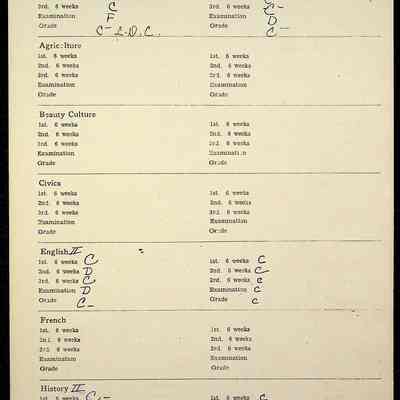 3rd. 6 weeks C 3rd. 6 weeks C-
Examination F Examination D
Grade C- L.D.C. Grade C-
Agriculture
1st. 6 weeks 1st. 6 weeks
2nd. 6 weeks 2nd. 6 weeks
3rd. 6 weeks 3rd. 6 weeks
Examination Examination
Grade Grade
Beauty Culture
1st. 6 weeks 1st. 6 weeks
2nd. 6 weeks 2nd. 6 weeks
3rd. 6 weeks 3rd. 6 weeks
Examination Examination
Grade Grade
Civics
1st. 6 weeks 1st. 6 weeks
2nd. 6 weeks 2nd. 6 weeks
3rd. 6 weeks 3rd. 6 weeks
Examination Examination
Grade Grade
English II
1st. 6 weeks C 1st. 6 weeks C
2nd. 6 weeks D 2nd. 6 weeks C
3rd. 6 weeks C 3rd. 6 weeks C
Examination D Examination C
Grade C- Grade C
French
1st. 6 weeks 1st. 6 weeks
2nd. 6 weeks 2nd. 6 weeks
3rd. 6 weeks 3rd. 6 weeks
Examination Examination
Grade Grade
History II
1st. 6 weeks C- 1st. 6 weeks C